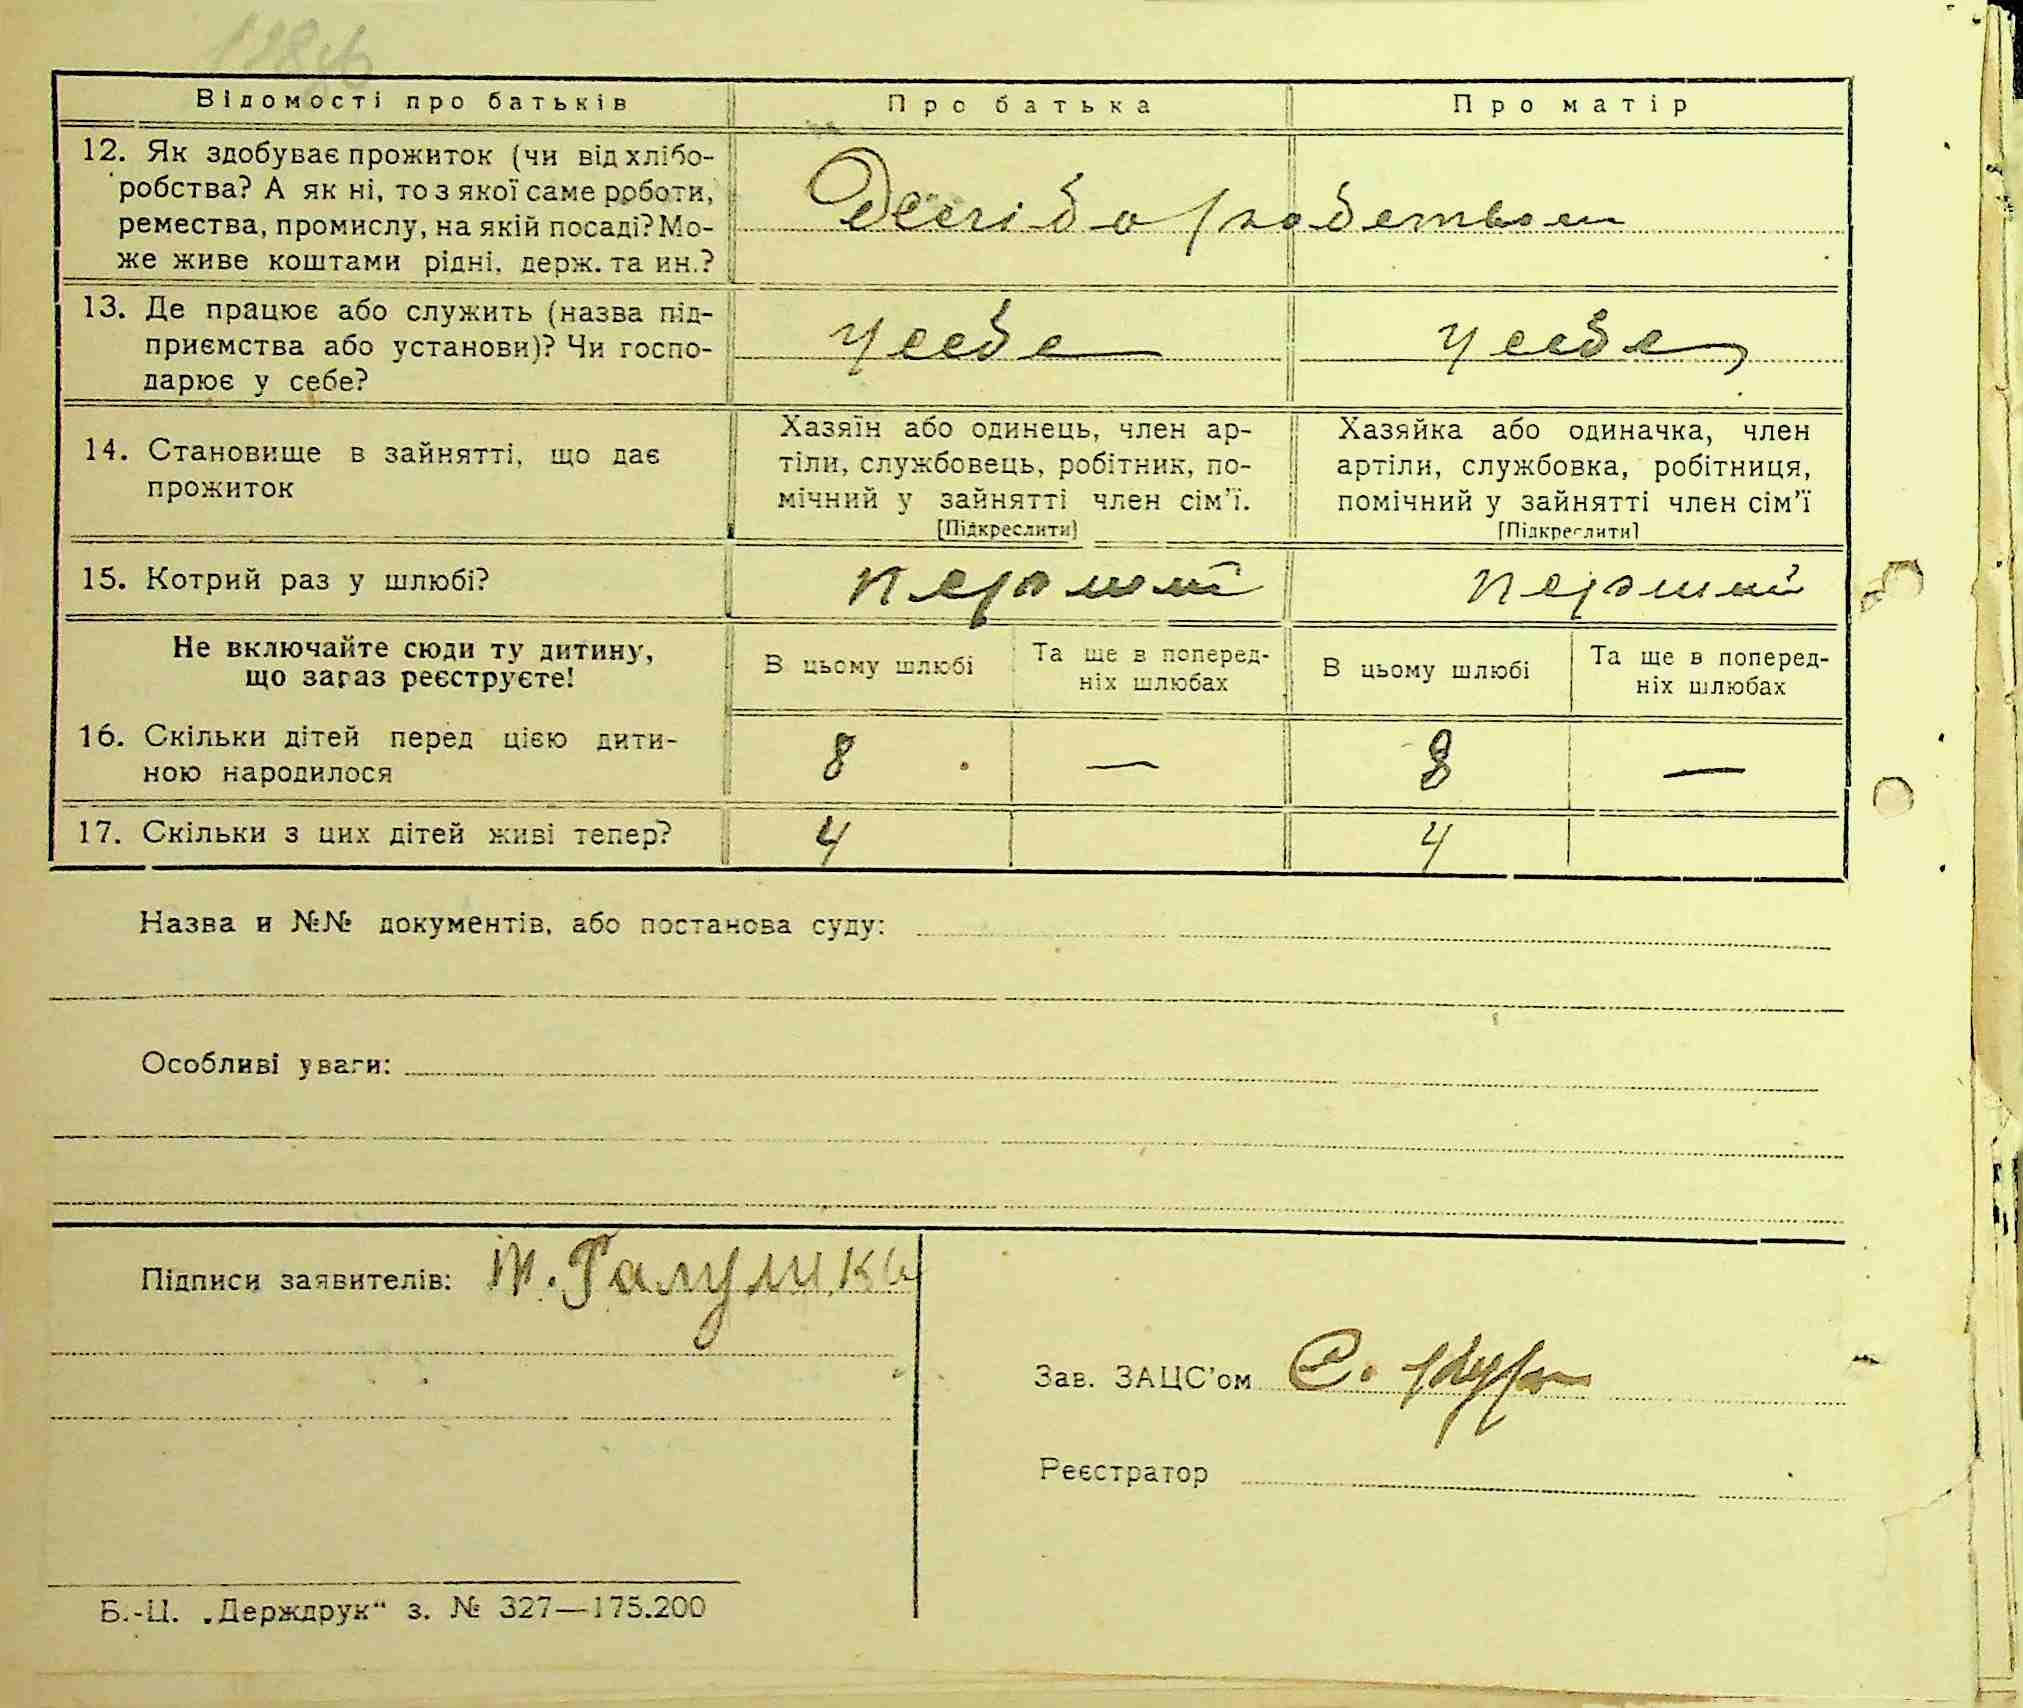 Відомості про батьків
Про батька
Про матір
12. Як здобуває прожиток (чи від хлібо-
робства? А як ні, то з якої саме роботи,
ремества, промислу, на якій посаді? Мо-
же живе коштами рідні, держ. та ин.?
Хлібороботвом
13. Де працює або служить (назва під-
приємства або установи)? Чи госпо-
дарює у себе?
у себе
у себе
14. Становище в зайнятті, що дає
прожиток
Хазяїн або одинець, член ар-
тіли, службовець, робітник, по-
мічний у зайнятті член сім'ї.
[Підкреслити]
Хазяйка або одиначка, член
артіли, службовка, робітниця,
помічний у зайнятті член сім'ї
[Підкреслити]
15. Котрий раз у шлюбі?
перший
перший
Не включайте сюди ту дитину,
що зараз реєструєте!
В цьому шлюбі
Та ще в поперед-
ніх шлюбах
В цьому шлюбі
Та ще в поперед-
ніх шлюбах
16. Скільки дітей перед цією дити-
ною народилося
8
—
8
—
17. Скільки з цих дітей живі тепер?
4
4
Назва и №№ документів, або постанова суду:
Особливі уваги:
Підписи заявителів:
Зав. ЗАЦС'ом
Реєстратор
Б.-Ц. „Держдрук“ з. № 327—175.200